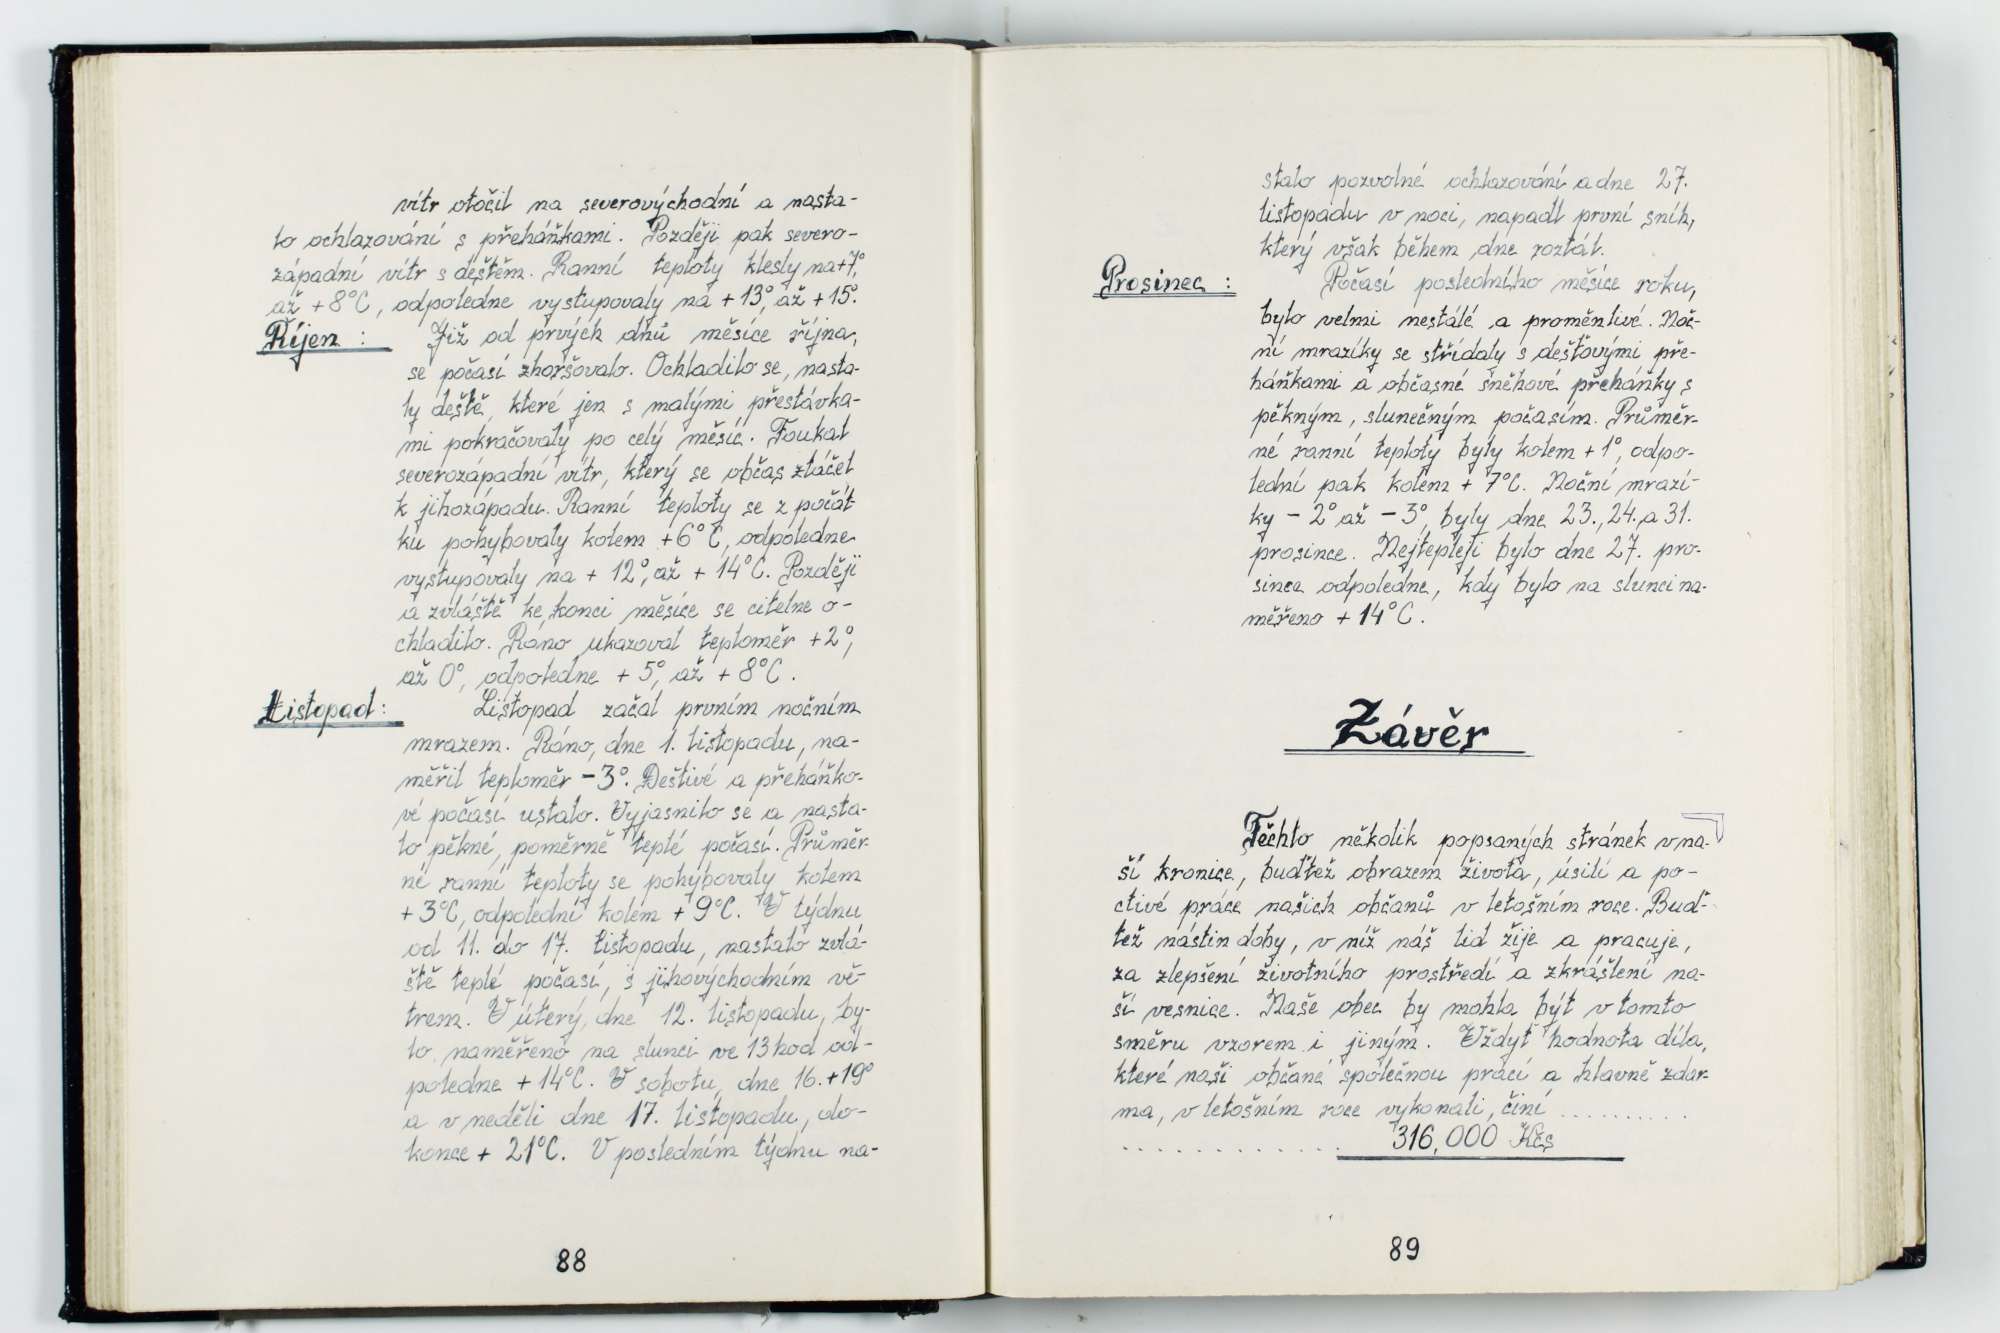 vítr otočil na severovýchodní a nasta-
lo ochlazování s přeháňkami. Později pak severo-
západní vítr s deštěm. Ranní teploty klesly na +7°,
až +8°C, odpoledne vystupovaly na +13°, až +15°.
Říjen : Již od prvých dnů měsíce října,
se počasí zhoršovalo. Ochladilo se, nasta-
ly deště, které jen s malými přestávka-
mi pokračovaly po celý měsíc. Foukal
severozápadní vítr, který se občas ztáčel
k jihozápadu. Ranní teploty se z počát-
ku pohybovaly kolem +6°C, odpoledne
vystupovaly na + 12°, až + 14°C. Později
a zvláště ke konci měsíce se citelne o-
chladilo. Ráno ukazoval teploměr +2°,
až 0°, odpoledne + 5°, až + 8°C.
Listopad : Listopad začal prvním nočním
mrazem. Ráno, dne 1. listopadu, na-
měřil teploměr -3°. Deštivé a přeháňko-
vé počasí ustalo. Vyjasnilo se a nasta-
lo pěkné, poměrně teplé počasí. Průměr-
né ranní teploty se pohybovaly kolem
+3°C, odpolední kolem +9°C. V týdnu
od 11. do 17. listopadu, nastalo zvlá-
ště teplé počasí, s jihovýchodním vě-
trem. V úterý, dne 12. listopadu, by-
lo naměřeno na slunci ve 13 hod od-
poledne + 14°C. V sobotu, dne 16. +19°
a v neděli dne 17. listopadu, do-
konce + 21°C. V posledním týdnu na-
88
stalo pozvolné ochlazování a dne 27.
listopadu v noci, napadl první sníh,
který však během dne roztál.
Prosinec : Počasí posledního měsíce roku,
bylo velmi nestálé a proměnlivé. Noč-
ní mrazíky se střídaly s dešťovými pře-
háňkami a občasné sněhové přeháňky s
pěkným, slunečným počasím. Průměr-
né ranní teploty byly kolem + 1°, odpo-
lední pak kolem + 7°C. Noční mrazí-
ky - 2° až - 3°, byly dne 23., 24. a 31.
prosince. Nejtepleji bylo dne 27. pro-
since odpoledne, kdy bylo na slunci na-
měřeno + 14°C.
Závěr
Těchto několik popsaných stránek v na-
ší kronice, buďtež obrazem života, úsilí a po-
ctivé práce našich občanů v letošním roce. Buď-
tež nástin doby, v níž náš lid žije a pracuje,
za zlepšení životního prostředí a zkrášlení na-
ší vesnice. Naše obec by mohla být v tomto
směru vzorem i jiným. Vždyť hodnota díla,
které naši občané společnou prácí a hlavně zdar-
ma, v letošním roce vykonali, činí ..........
.............. 316,000 Kčs
89